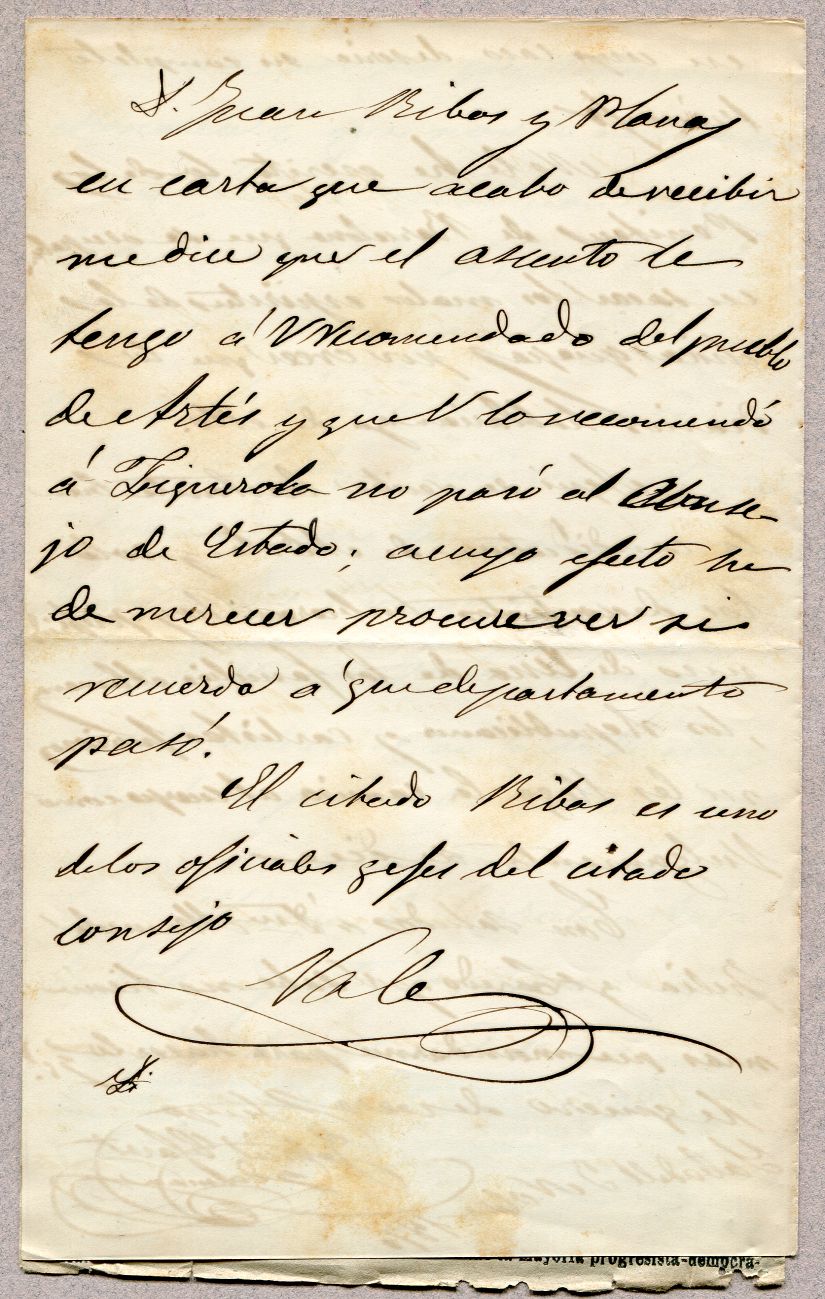 D. Juan Ribas y Planas
en carta que acabo de recibir
me dice que el asunto le
tengo á V recomendado del pueblo
de Artés y que V lo recomendó
á Figuerola no pasó al Conse-
jo de Estado; a cuyo efecto he
de merecer procure ver si
recuerda á que departamento
pasó.
El citado Ribas es uno
de los oficiales gefes del citado
consejo
Vale
Mayoría progresista-democra-